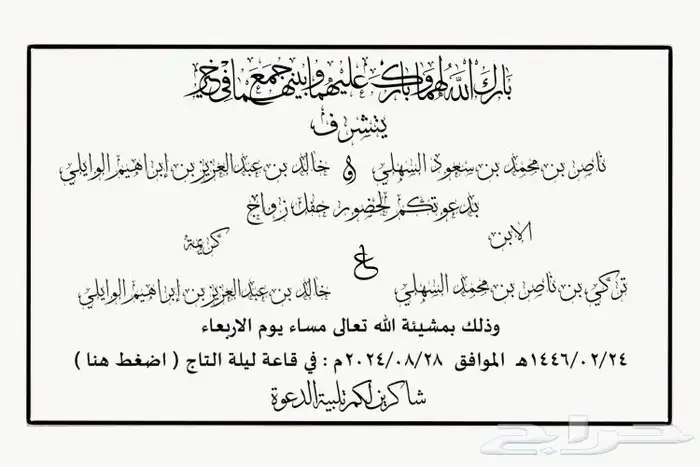 بارك الله لهما وبارك عليهما وجمع بينهما في خير
يتشرف
ناصر بن محمد بن سعود السهلي و خالد بن عبدالعزيز بن ابراهيم الوايلي
بدعوتكم لحضور حفل زواج
الابن كريمة
تركي بن ناصر بن محمد السهلي على خالد بن عبدالعزيز بن ابراهيم الوايلي
وذلك بمشيئة الله تعالى مساء يوم الاربعاء
١٤٤٦/٠٢/٢٤هـ الموافق ٢٠٢٤/٠٨/٢٨م : في قاعة ليلة التاج ( اضغط هنا )
شاكرين لكم تلبية الدعوة
حراج